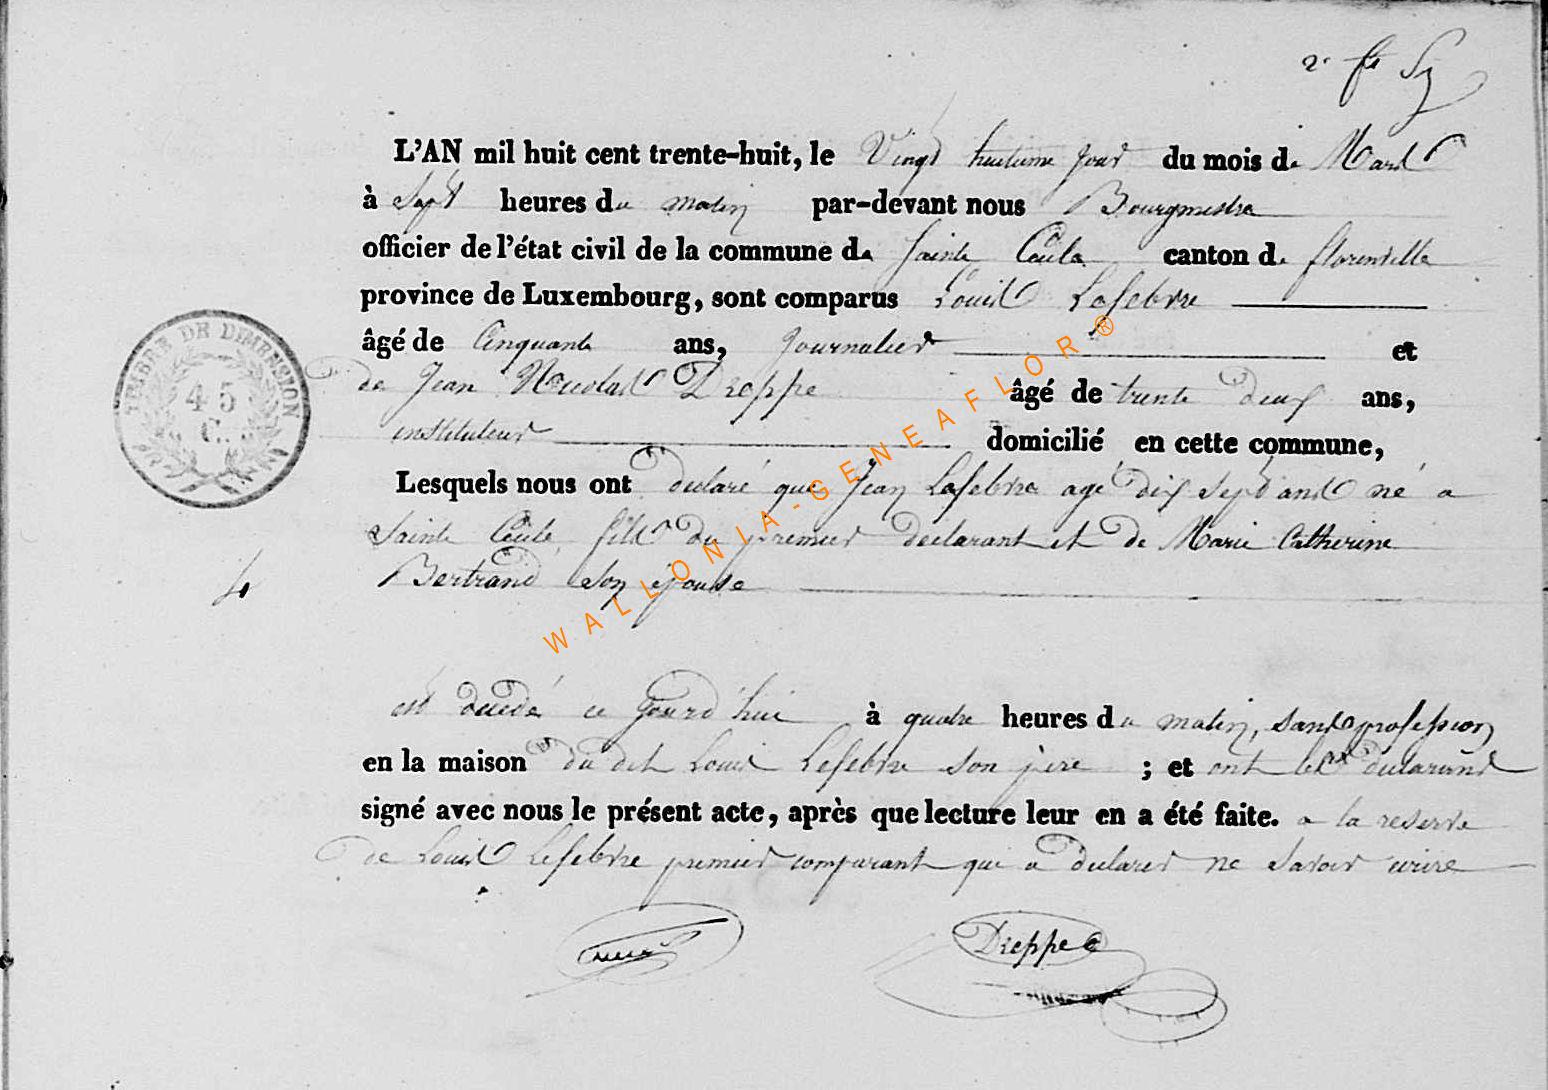 2e
L'AN mil huit cent trente-huit, le Vingt huitieme jour du mois de Mars
à Sept heures du matin par-devant nous Bourgmestre
officier de l'état civil de la commune de Sainte Cecile canton de florenville
province de Luxembourg, sont comparus Louis Lefebvre
âgé de Cinquante ans, Journalier et
de Jean Nicolas Dieppe âgé de trente deux ans,
instituteur domicilié en cette commune,
Lesquels nous ont déclaré que Jean Lefebvre agé dix sept ans né a
Sainte Cécile fils du premier déclarant et de Marie Catherine
Bertrand son épouse
4
est décédé ce Jourd'hui à quatre heures du matin, sans profession
en la maison du dit Louis Lefebvre son père ; et ont les declarans
signé avec nous le présent acte, après que lecture leur en a été faite. a la reserve
de Louis Lefebvre premier comparant qui a declarer ne savoir ecrire
Dieppe
TIMBRE DE DIMENSION
45
C.
WALLONIA-GENEAFLOR®